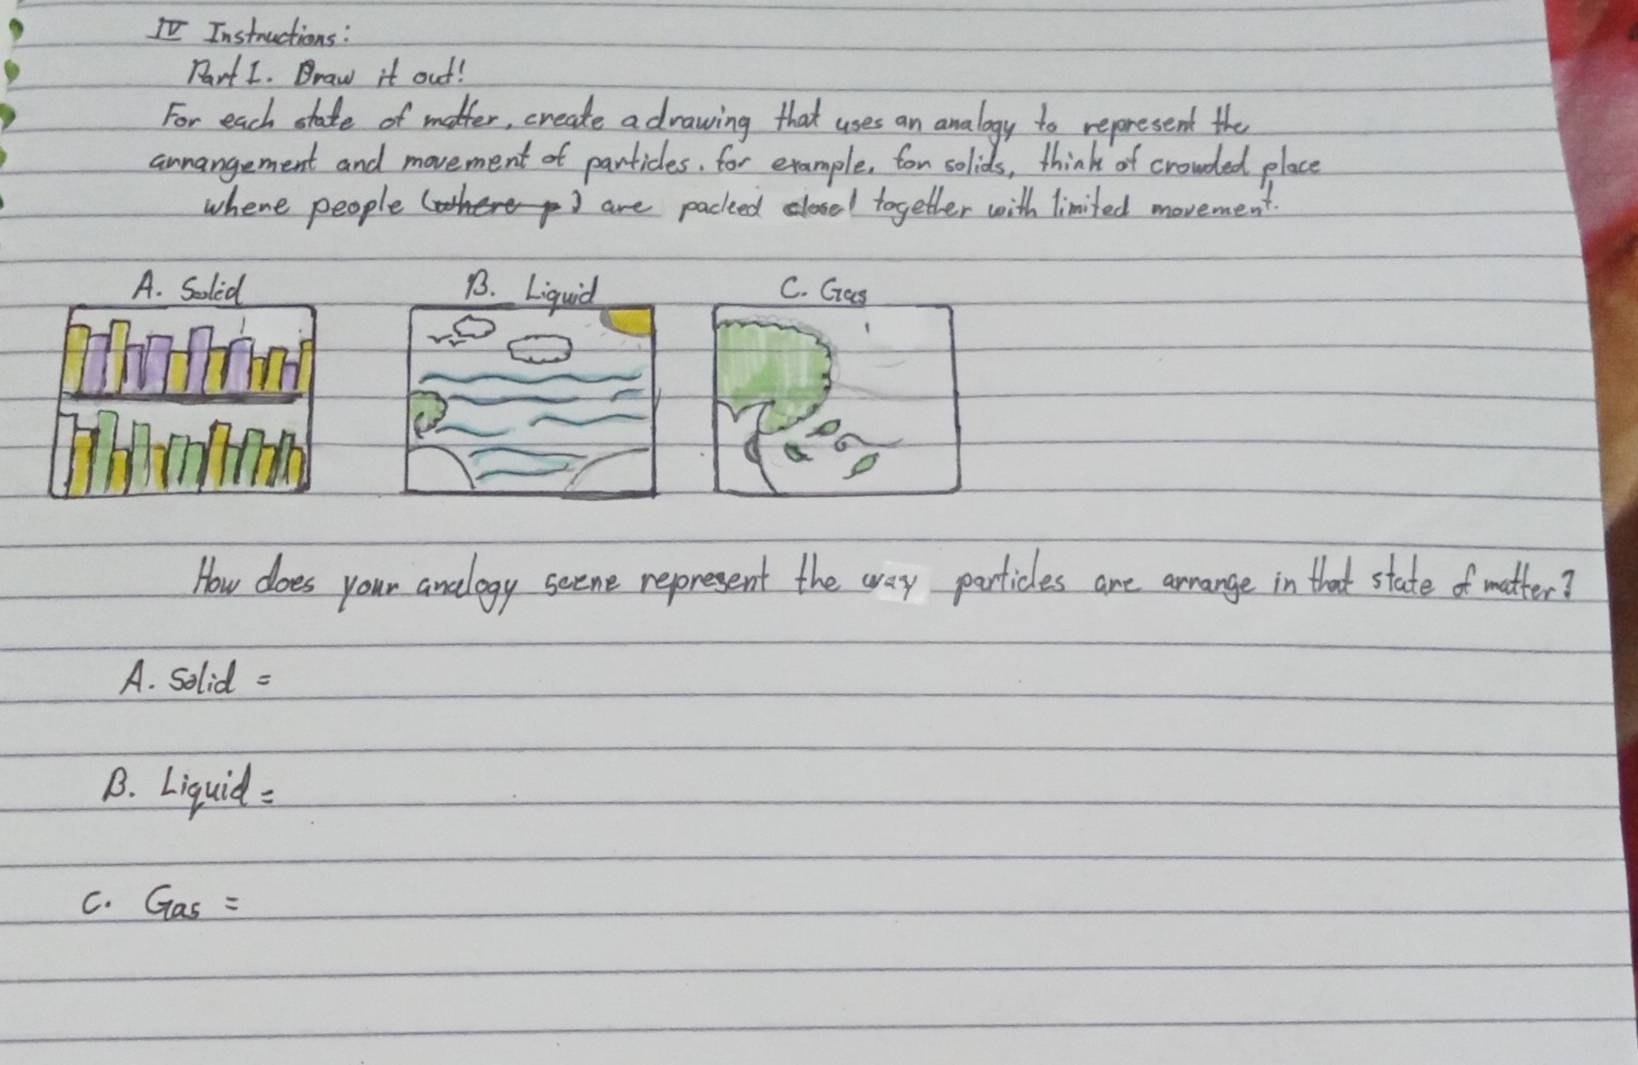 IV Instructions:
Part I. Draw it out!
For each state of matter, create a drawing that uses an analogy to represent the
arrangement and movement of particles. for example, for solids, think of crowded place
where people (where p) are packed close! together with limited movement!
A. Solid B. Liquid C. Gas
How does your analogy scene represent the way particles are arrange in that state of matter?
A. Solid =
B. Liquid =
C. Gas =